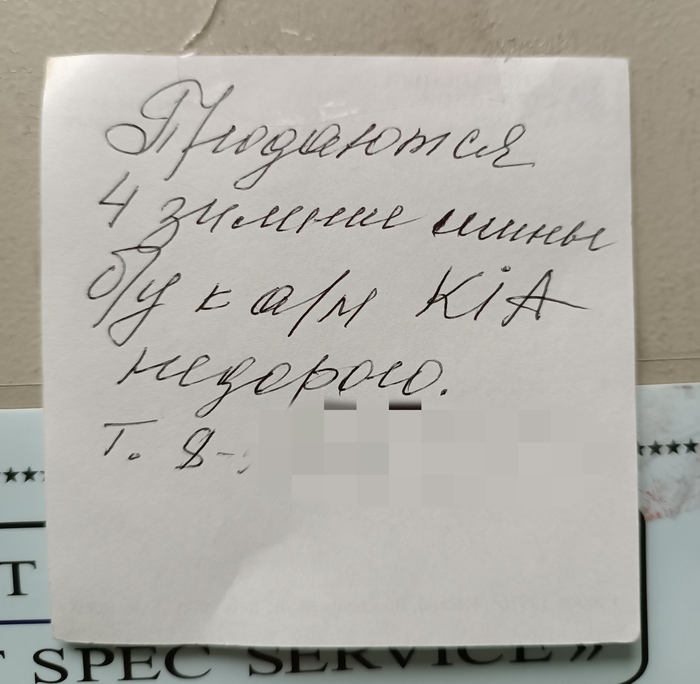 Продаются
4 зимние шины
б/у к а/м KiA
недорого.
т. 8-
★★★ ★★★★
T
T SPEC SERVICE»